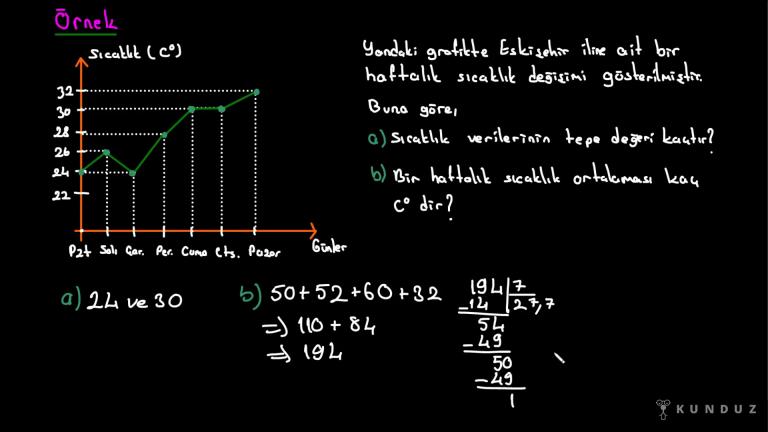 Örnek
Sıcaklık (C°)
32
30
28
26
24
22
Pzt Salı Çar. Per. Cuma Cts. Pazar
Günler
Yandaki grafikte Eskişehir iline ait bir
haftalık sıcaklık değişimi gösterilmiştir.
Buna göre,
a) Sıcaklık verilerinin tepe değeri kaçtır?
b) Bir haftalık sıcaklık ortalaması kaç
C° dir?
a) 24 ve 30
b) 50+52+60+32
=> 110 + 84
=> 194
194 7
-14 27,7
54
-49
50
-49
1
KUNDUZ